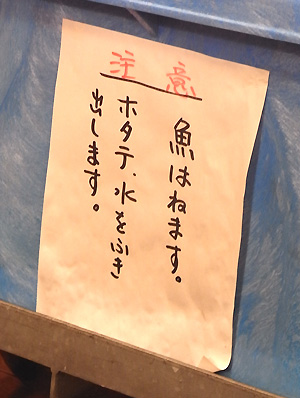 注意
魚はねます。
ホタテ、水をふき
出します。